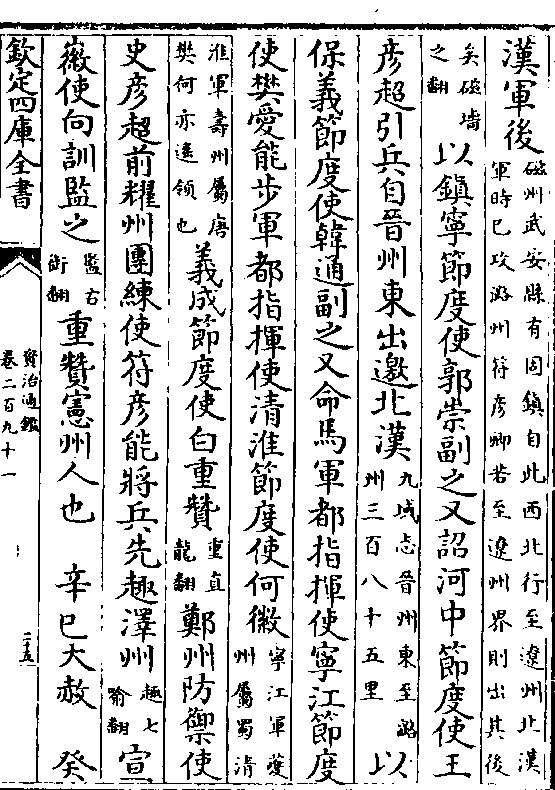 漢軍後磁州武安縣有固鎮自此西北行至遼州北漢軍時已攻潞州符彦卿若至遼州界則出其後
矣磁墻之翻以鎮寧節度使郭崇副之又詔河中節度使王
彦超引兵自晉州東出邀北漢九域志晉州東至潞州三百八十五里以
保義節度使韓通副之又命馬軍都指揮使寧江節度
使樊愛能步軍都指揮使清淮節度使何徽寧江軍夔州屬蜀清
淮軍壽州屬唐樊何亦遥領也義成節度使白重贊重直龍翻鄭州防禦使
史彦超前耀州團練使符彦能將兵先趣澤州趣七喻翻宣
徽使向訓監之監右銜翻重贊憲州人也 辛巳大赦 癸
欽定四庫全書
資治通鑑
卷二百九十一
二十五